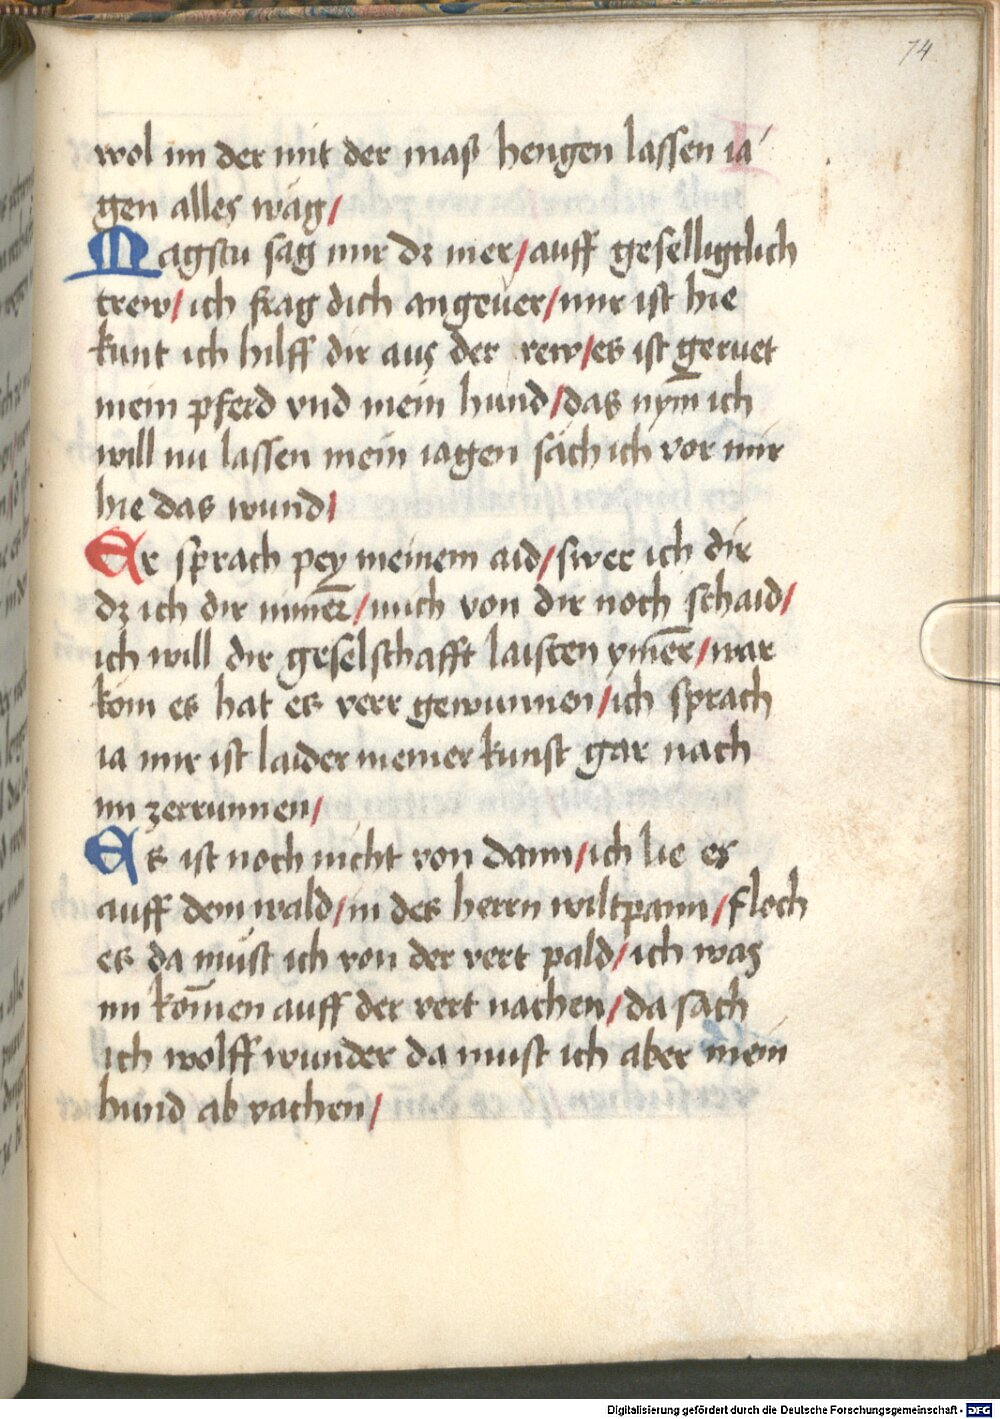 74
wol im der mit der masz hengen lassen ia
gen alles wäg/
Magstu sag mir dz mer/auff geselligtlich
trew/ich frag dich angeuer/mir ist hie
kunt ich hilff dir aus der rew/es ist geruet
mein pferd vnd mein hund/das nym̄ ich
will nu lassen mein iagen säch ich vor mir
hie das wund/
Er sprach pey meinem aid/swer ich dir
dz ich dir nimer̄/mich von dir noch schaid/
ich will dir geselschafft laisten ymer̄/war
kom es hat es verr gewunnen/ich sprach
ia mir ist laider meiner kunst gar nach
im zerrunnen/
Es ist noch nicht von dann/ich lie es
auff dem wald/in des herrn wiltpann/floch
es da must ich von der vert pald/ich was
im kom̄en auff der vert nachen/da sach
ich wolff wunder da must ich aber mein
hund ab vachen/
Digitalisierung gefördert durch die Deutsche Forschungsgemeinschaft - DFG